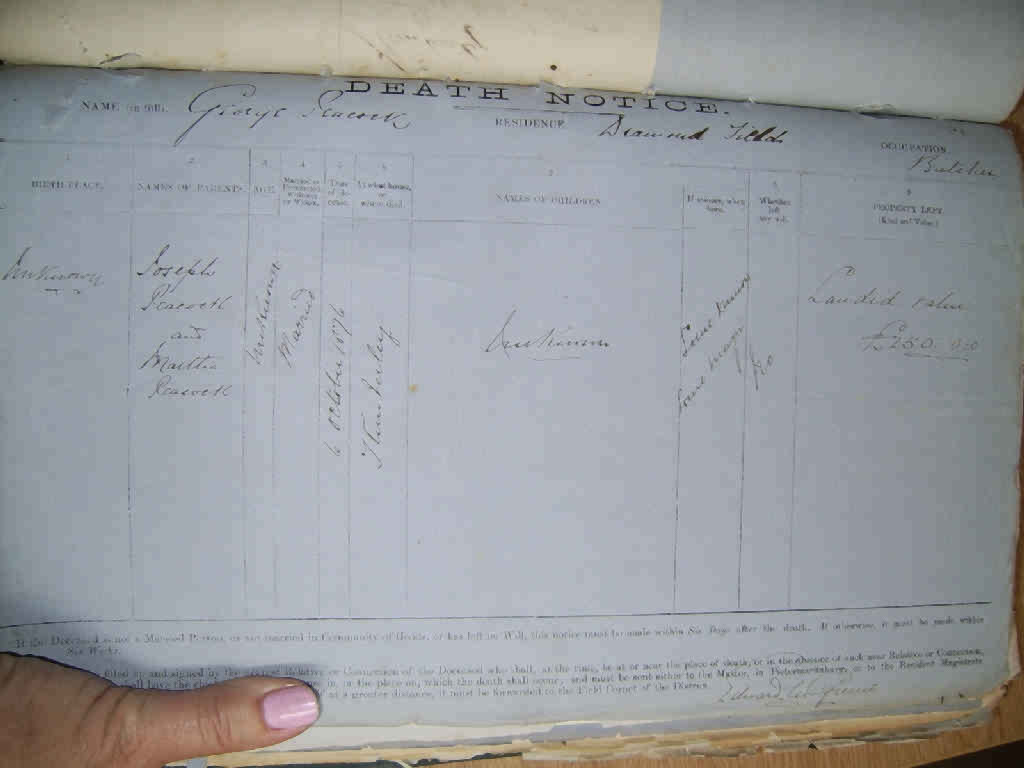 DEATH NOTICE.
NAME (in full). George Peacock
RESIDENCE Diamond Fields
OCCUPATION Butcher
1 2 3. 4 5 6 7 8 9
BIRTH-PLACE. NAMES OF PARENTS. AGE. NAMES OF CHILDREN Whether left any will. PROPERTY LEFT.
(Kind and Value.)
Unknown
Joseph
Peacock
and
Martha
Peacock
Unknown
Married
6 October 1876
Kimberley
Unknown
No
Landed value
£250. 0.0
If the Deceased is not a Married Person, or not married in Community of Goods, or has left no Will, this notice must be made within Six Days after the death. If otherwise, it must be made within
Six Weeks.
filled up and signed by the nearest Relative or Connexion of the Deceased who shall, at the time, be at or near the place of death, or in the absence of such near Relative or Connexion,
in, or the place on, which the death shall occur; and must be sent either to the Master, in Pietermaritzburg, or to the Resident Magistrate
at a greater distance, it must be forwarded to the Field Cornet of the District.
Edward